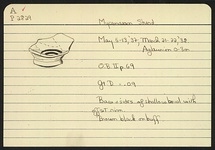 A
P 2829
Mycenaean Sherd
May 5-13, '37, March 21-22, '38
O.E. II p. 69
Base + sides of shallow bowl with
offset rim
brown black on buff